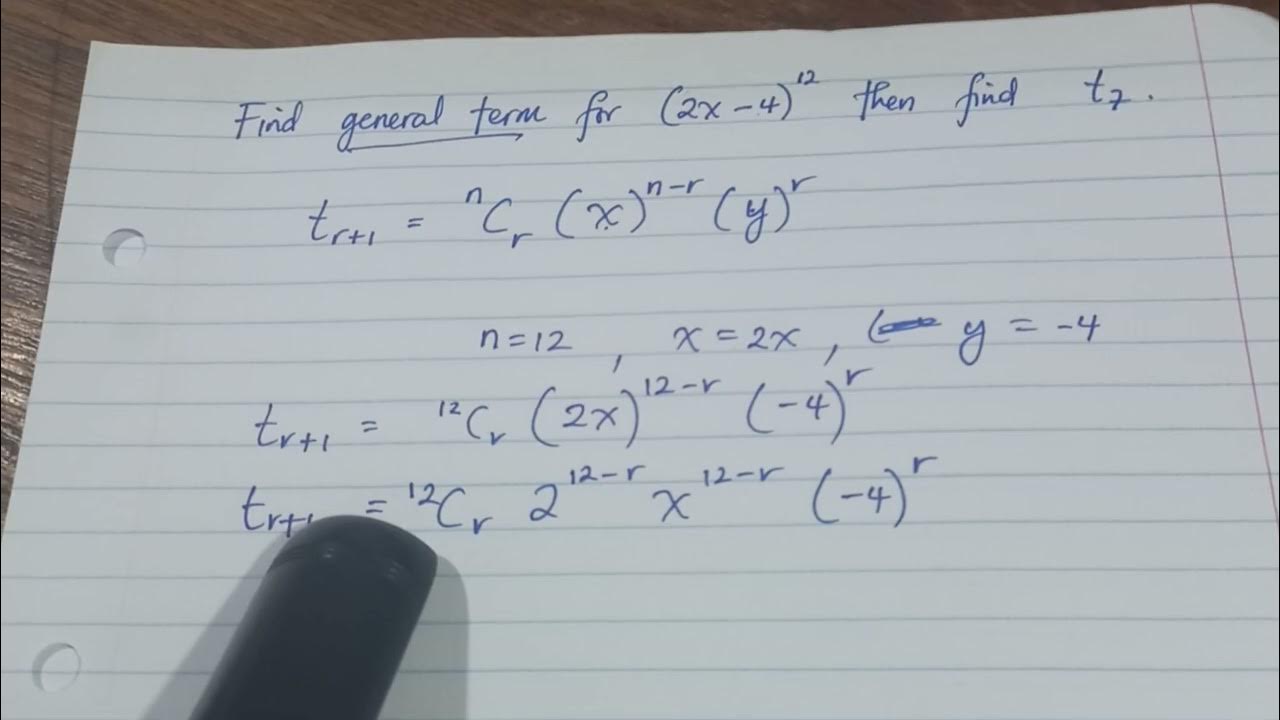 Find general term for (2x-4)¹² then find t₇.
tᵣ₊₁ = ⁿCᵣ (x)ⁿ⁻ʳ (y)ʳ
n=12 , x=2x , y = -4
tᵣ₊₁ = ¹²Cᵣ (2x)¹²⁻ʳ (-4)ʳ
tᵣ₊₁ = ¹²Cᵣ 2¹²⁻ʳ x¹²⁻ʳ (-4)ʳ